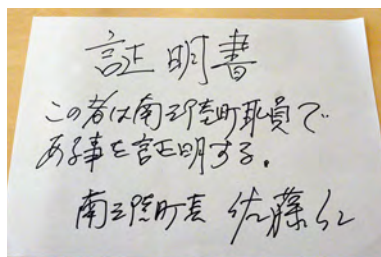 証明書
この者は南三陸町职員で
ある事を証明する。
南三陸町長 佐藤仁